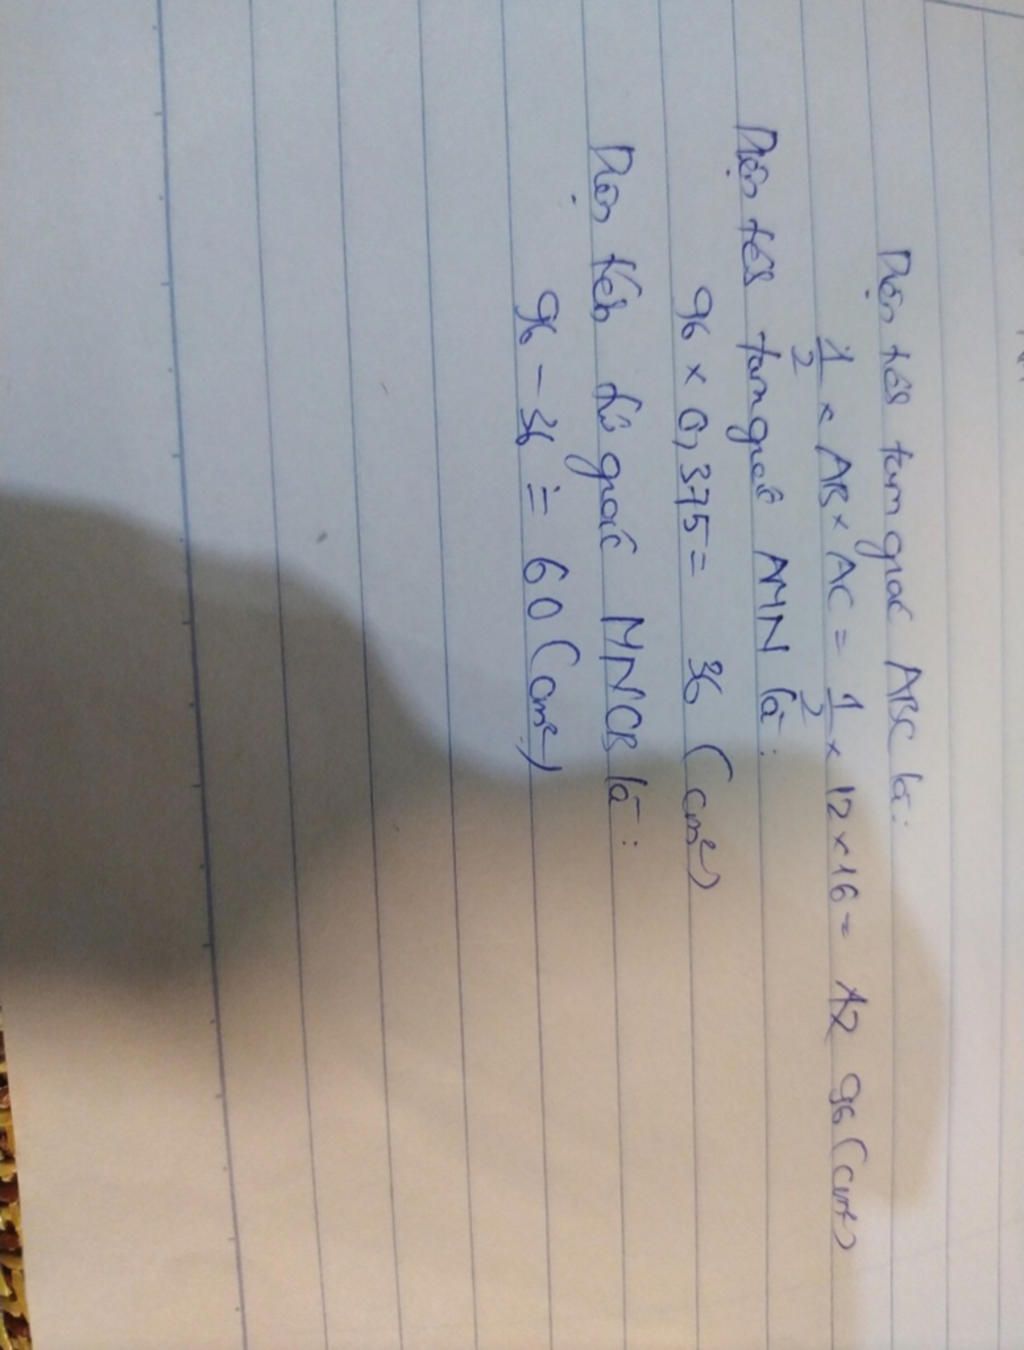 Diện tích tam giác ABC là:
1/2 × AB × AC = 1/2 × 12 × 16 = 96 (cm²)
Diện tích tam giác AMN là:
96 × 0,375 = 36 (cm²)
Diện tích tứ giác MNCB là:
96 - 36 = 60 (cm²)